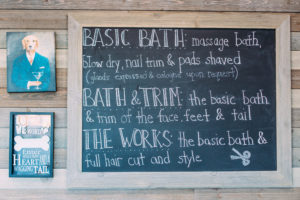 BASIC BATH: massage bath,
blow dry, nail trim & pads shaved
(glands expressed & cologne upon request)
BATH & TRIM: the basic bath
& trim of the face, feet & tail
THE WORKS: the basic bath &
full hair cut and style
Enter
HEART
TAIL